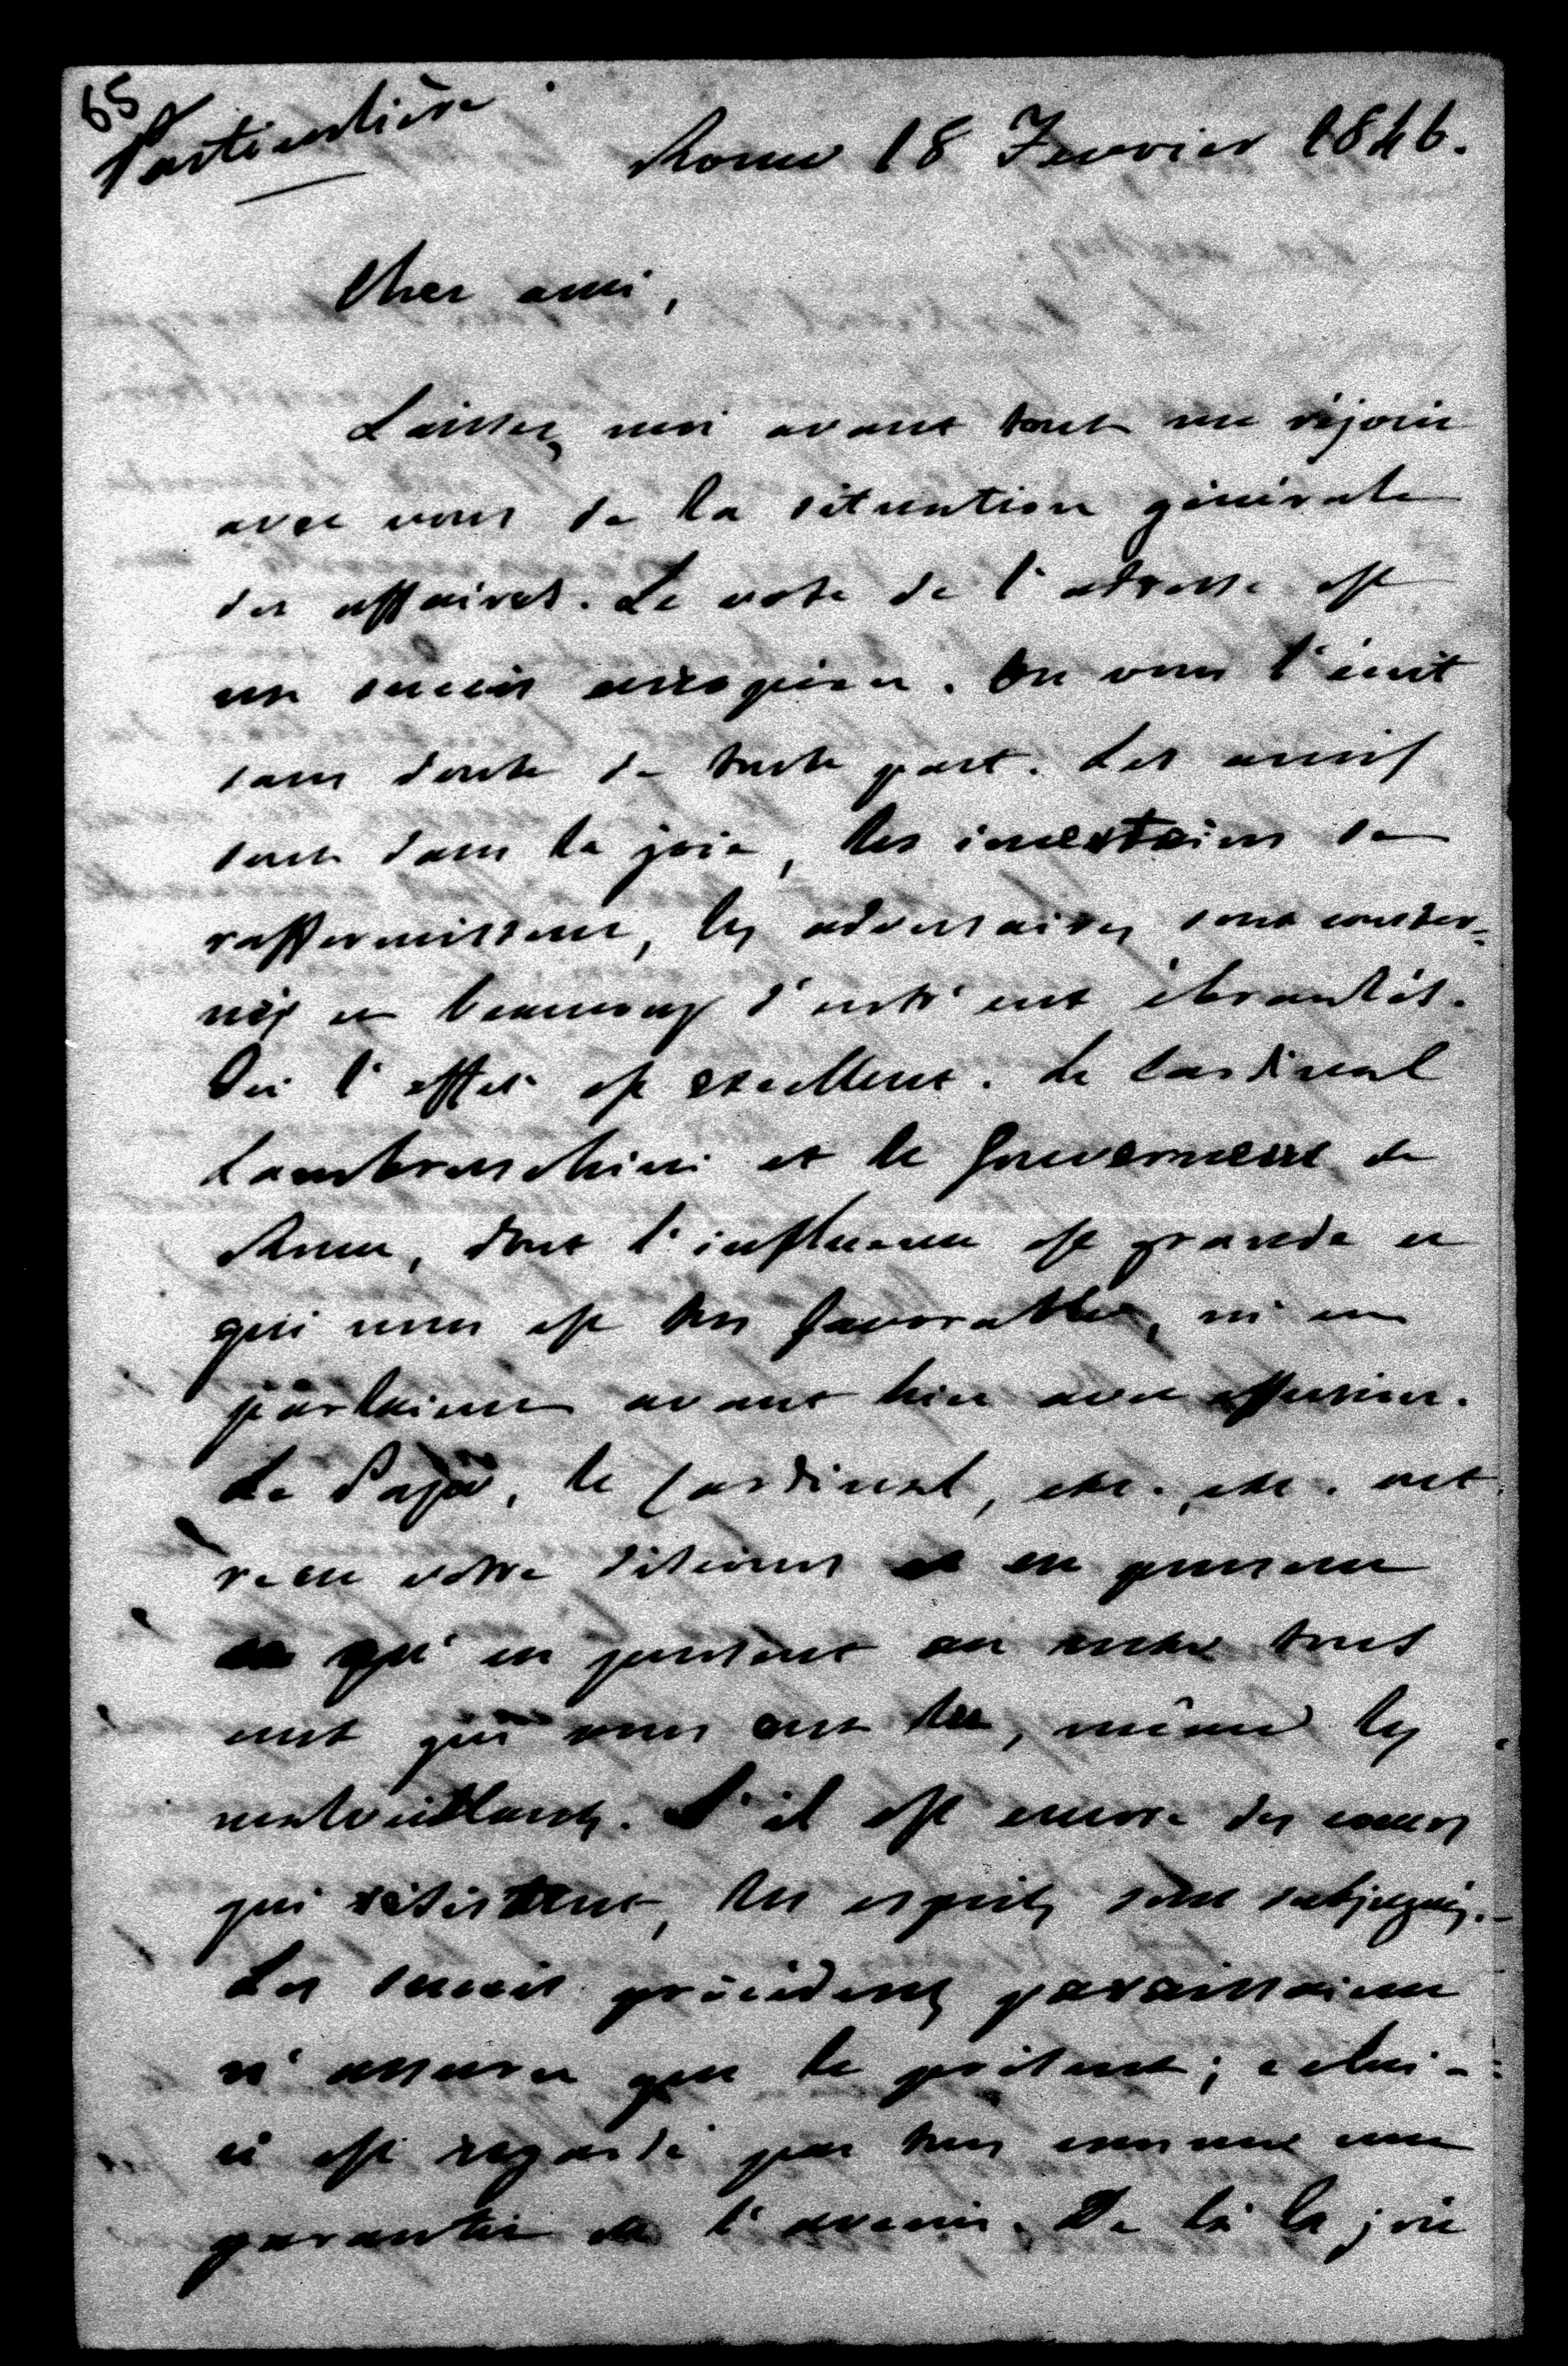 65
Particulière
Rome 18 Fevrier 1846.
Cher ami,
Laissez moi avant tout me réjouir
avec vous de la situation générale
des affaires. Le vote de l'adresse est
un succès européen. On vous l'écrit
sans doute de toute part. Les amis
sont dans la joie, les incertains se
raffermissent, les adversaires sont conster-
nés et beaucoup d'entr'eux ébranlés.
Ici l'effet est excellent. Le Cardinal
Lambruschini et le Gouverneur de
Rome, dont l'influence est grande et
qui nous est très favorable, m'en
parlaient avant hier avec effusion.
Le Pape, le Cardinal, etc. etc. ont
lu votre discours et en pensent
ce qu'en pensent au reste tous
ceux qui vous ont lu, même les
malveillants. S'il est encore des cœurs
qui résistent, les esprits sont subjugués.
Les succès précédents paraissaient
n'assurer que le présent; celui-
ci est regardé par tous comme une
garantie de l'avenir. De là la joie